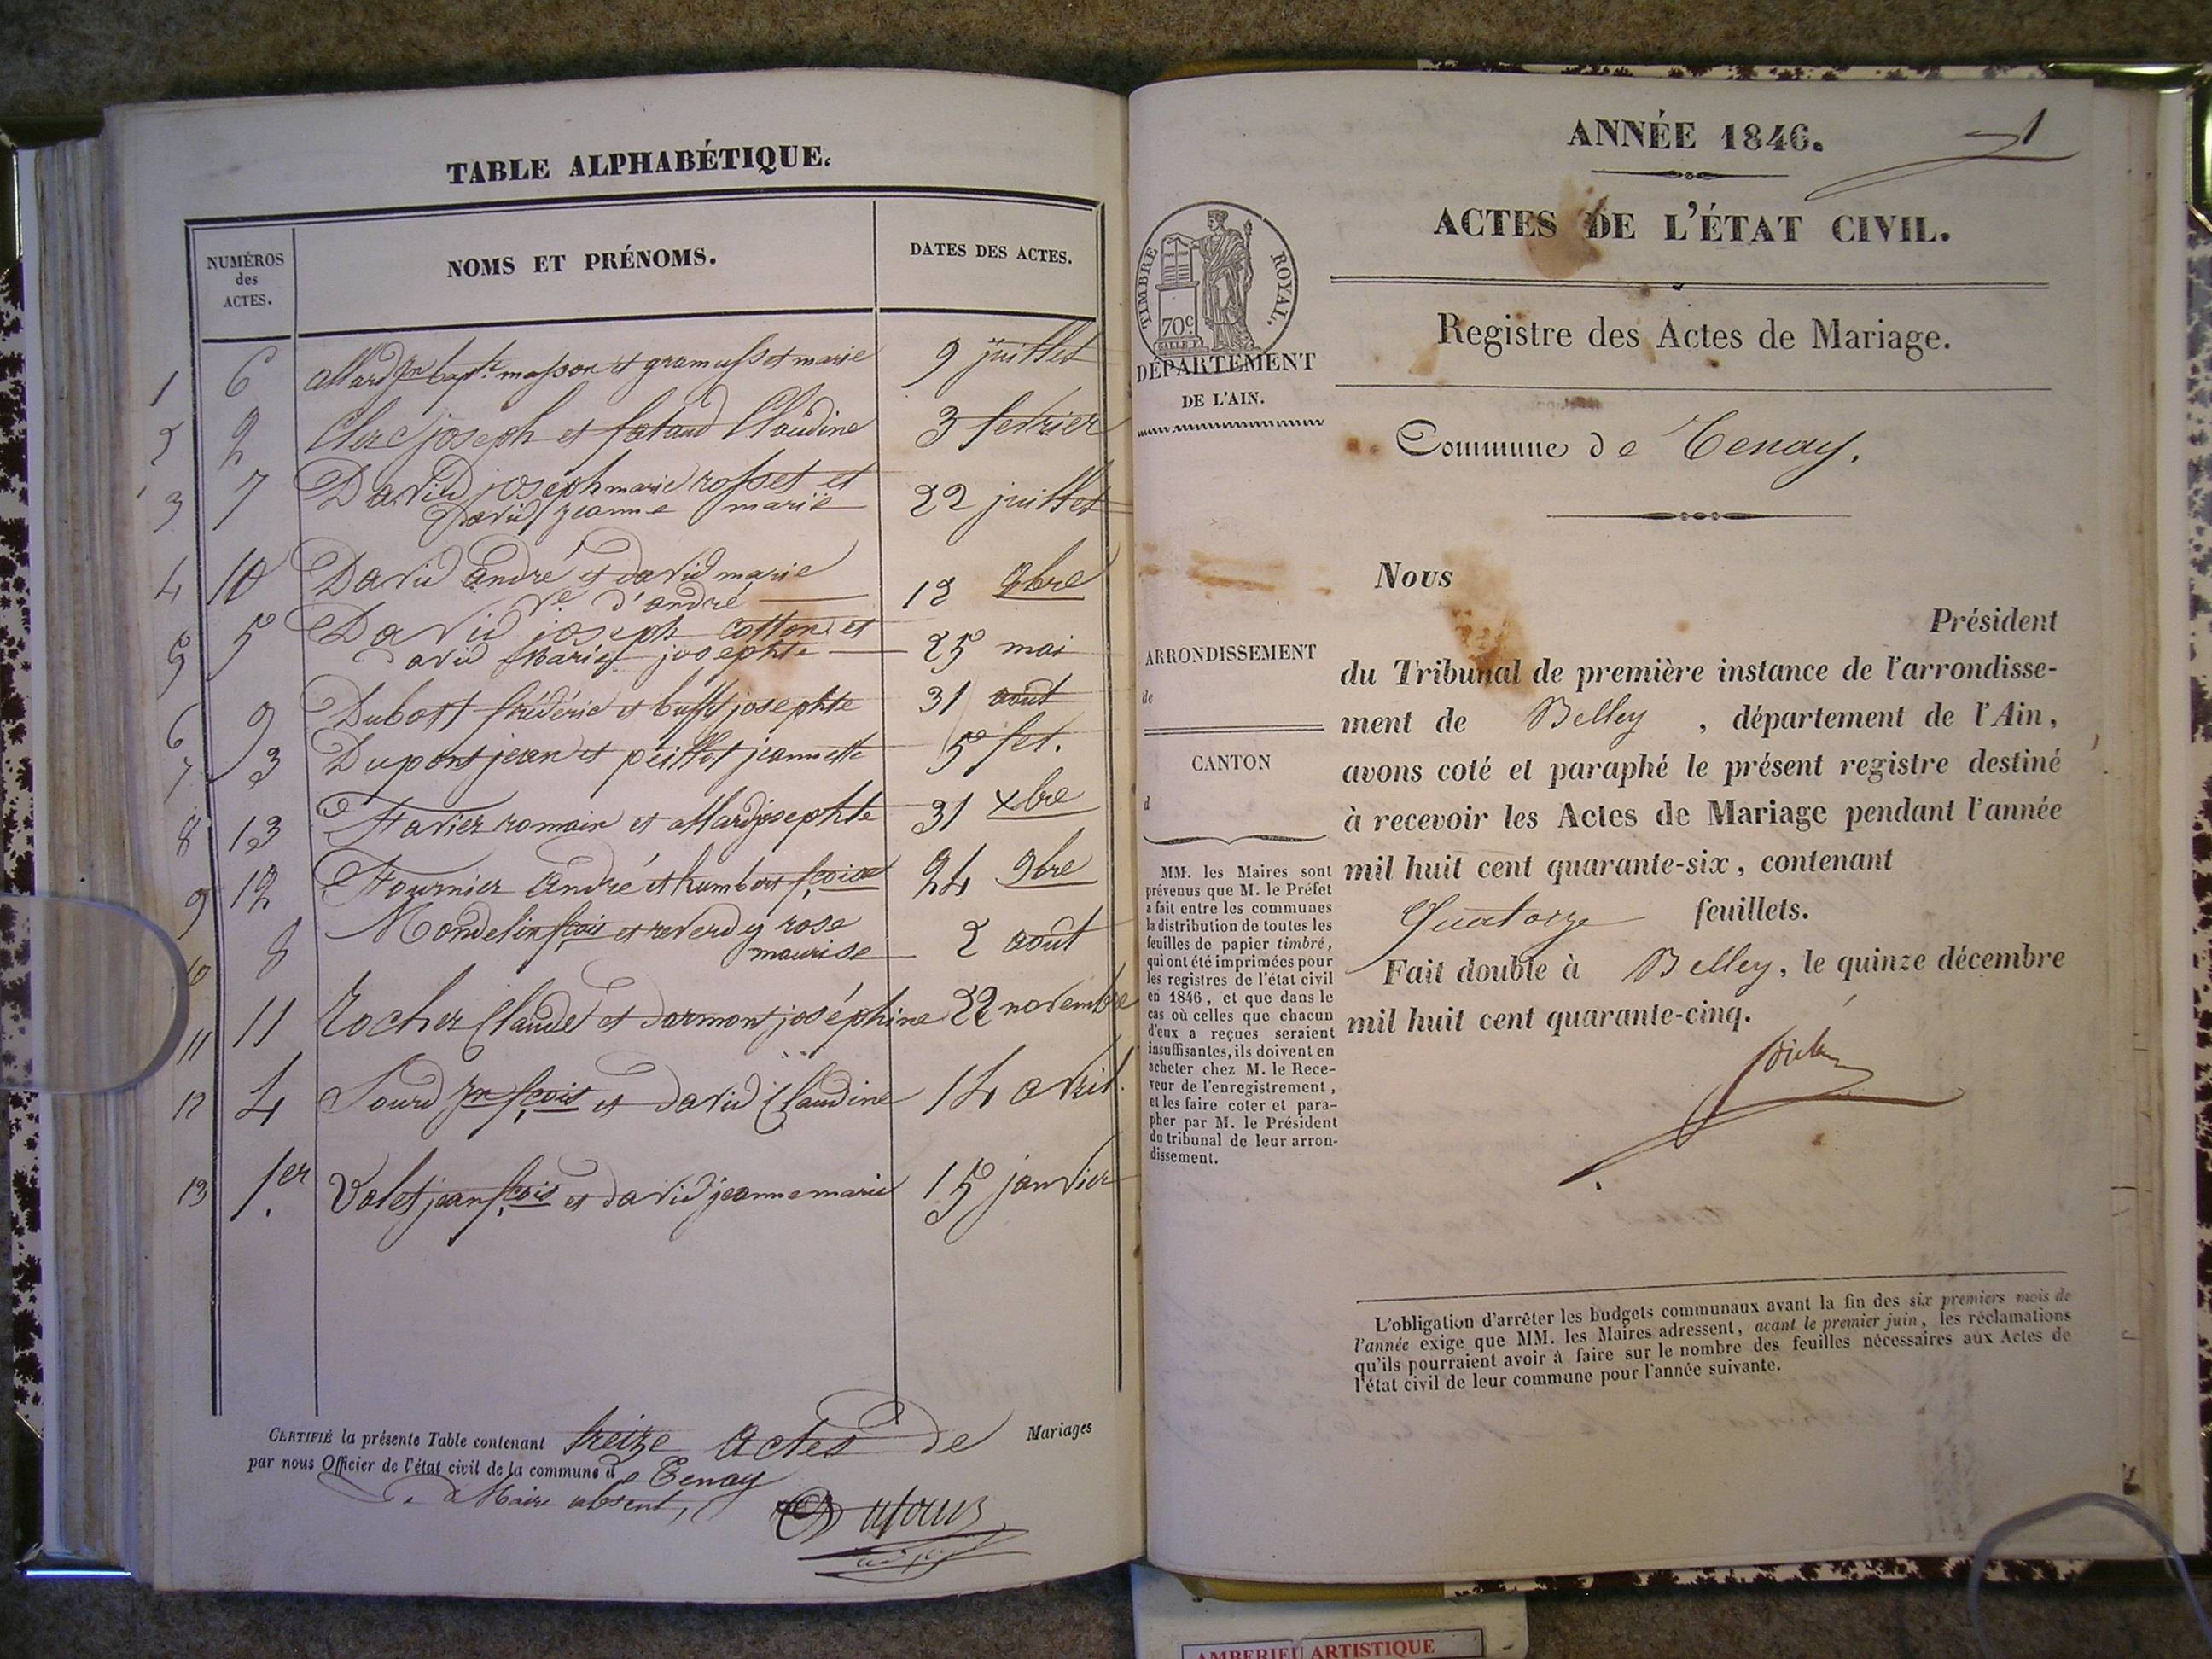 TABLE ALPHABÉTIQUE.
NUMÉROS des ACTES.
NOMS ET PRÉNOMS.
DATES DES ACTES.
1 6 allard jn bapte masson et gramusset marie 9 juillet
2 2 Clerc joseph et fataud Claudine 3 fevrier
3 7 David joseph marie rosset et
david jeanne marie 22 juillet
4 10 David andré et david marie
ve d'andré 12 9bre
5 5 David joseph cotton et
david Marie josephte 25 mai
6 9 Dubost frédéric et buffet josephte 31 août
7 3 Dupont jean et peillot jeannette 5 fev.
8 13 Favier romain et allard josephte 31 xbre
9 12 Fournier andré et humbert fcoise 24 9bre
10 8 Mondelin fcois et reverdy rose
maurise 2 août
11 11 Rocher Claude et dormont joséphine 22 novembre
12 4 Sourd jn fcois et david Claudine 14 avril.
13 1.er Volet jean fcois et david jeanne marie 15 janvier
CERTIFIÉ la présente Table contenant treize actes de Mariages
par nous Officier de l'état civil de la commune de Tenay
Le Maire absent,
ANNÉE 1846.
1
ACTES DE L'ÉTAT CIVIL.
TIMBRE ROYAL.
70c
DÉPARTEMENT
DE L'AIN.
Registre des Actes de Mariage.
Commune de Tenay.
Nous
Président
du Tribunal de première instance de l'arrondisse-
ment de Belley, département de l'Ain,
avons coté et paraphé le présent registre destiné
à recevoir les Actes de Mariage pendant l'année
mil huit cent quarante-six, contenant
Quatorze feuillets.
Fait double à Belley, le quinze décembre
mil huit cent quarante-cinq.
ARRONDISSEMENT
de
CANTON
d
MM. les Maires sont
prévenus que M. le Préfet
a fait entre les communes
la distribution de toutes les
feuilles de papier timbré,
qui ont été imprimées pour
les registres de l'état civil
en 1846, et que dans le
cas où celles que chacun
d'eux a reçues seraient
insuffisantes, ils doivent en
acheter chez M. le Rece-
veur de l'enregistrement,
et les faire coter et para-
pher par M. le Président
du tribunal de leur arron-
dissement.
L'obligation d'arrêter les budgets communaux avant la fin des six premiers mois de
l'année exige que MM. les Maires adressent, avant le premier juin, les réclamations
qu'ils pourraient avoir à faire sur le nombre des feuilles nécessaires aux Actes de
l'état civil de leur commune pour l'année suivante.
AMBERIEU ARTISTIQUE